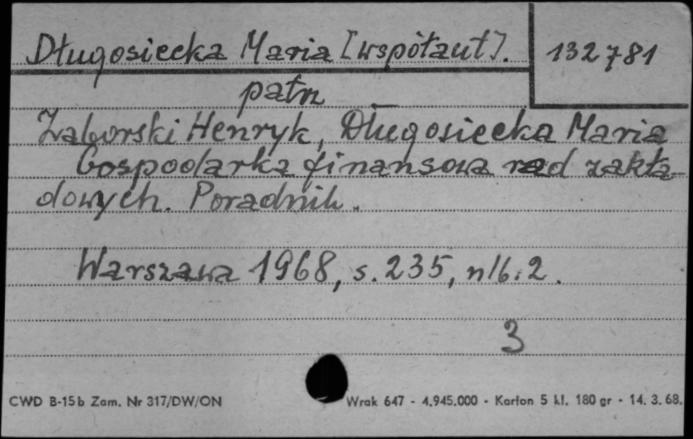 Długosiecka Maria [współaut].
132781
patrz
Zaborski Henryk, Długosiecka Maria
Gospodarka finansowa rad zakła-
dowych. Poradnik.
Warszawa 1968, s. 235, nlb. 2.
3
CWD B-15b Zam. Nr 317/DW/ON
Wrak 647 - 4.945.000 - Karton 5 kl. 180 gr - 14. 3. 68.